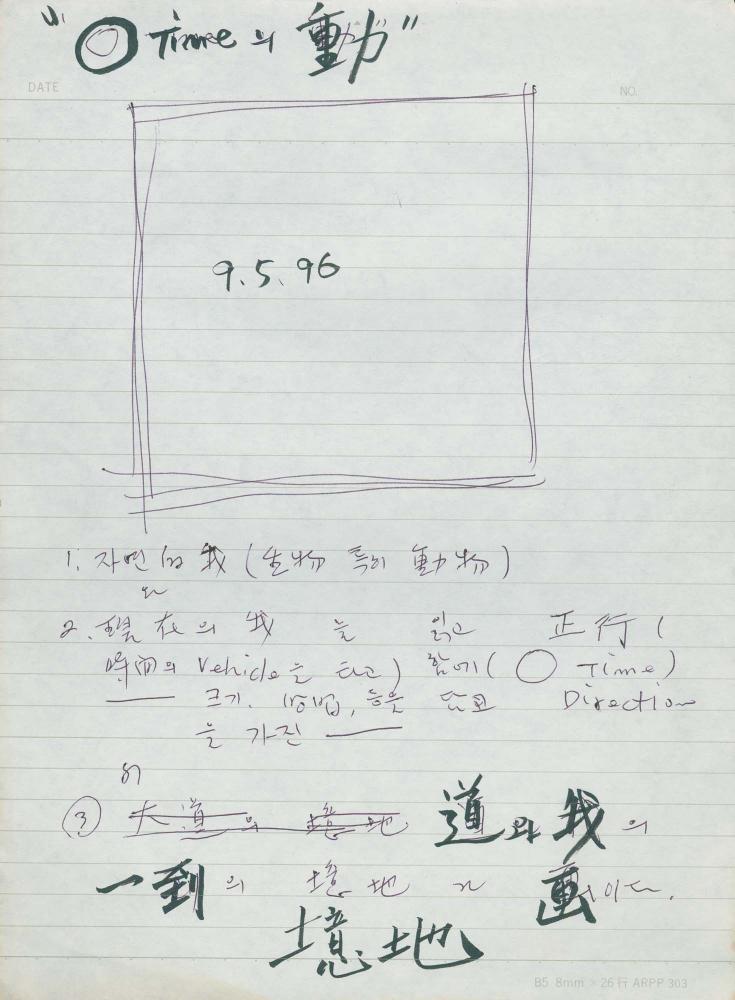 "◯ Time의 動"
DATE NO.
9.5.96
1. 자연的 我 (生物 특히 動物)
2. 現在의 我 를 읽고 正行 (
時間의 Vehicle을 타고) 함에 (◯ Time)
크기. 방법, 등을 Direction
을 가진
③ 大道의 境地 道와 我의
一到의 境地 이다.
境地
B5 8mm × 26行 ARPP 303